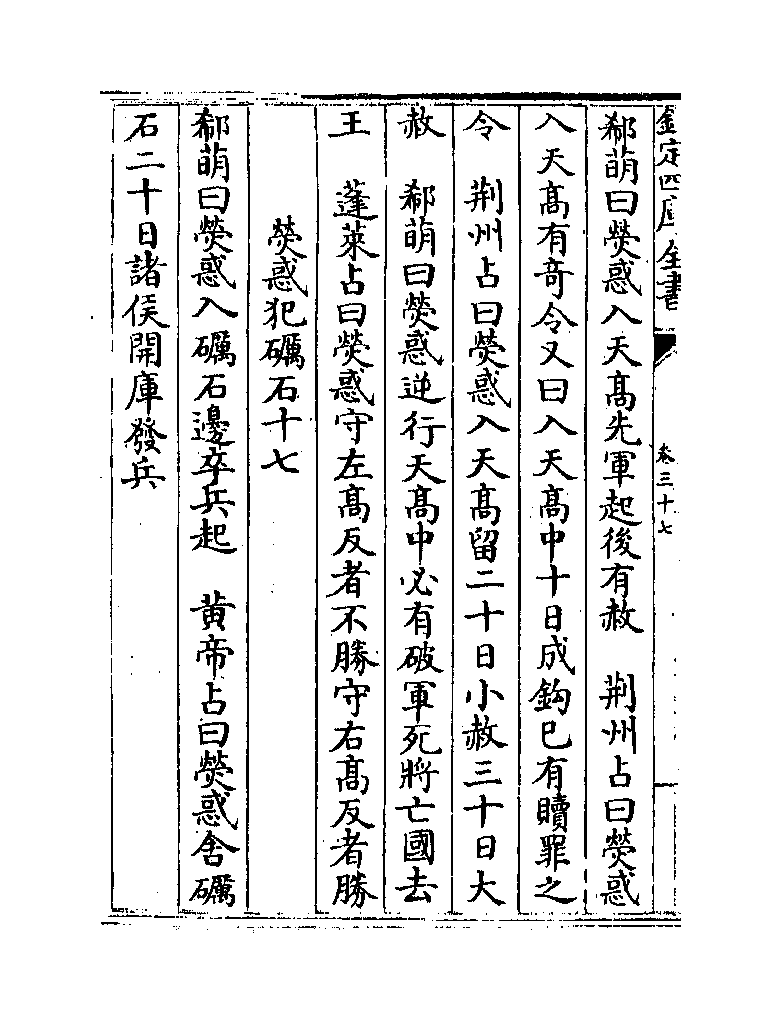 欽定四庫全書
卷三十七
郗萌曰熒惑入天髙先軍起後有赦　荆州占曰熒惑
入天髙有竒令又曰入天髙中十日成鈎巳有贖罪之
令　荆州占曰熒惑入天髙留二十日小赦三十日大
赦　郗萌曰熒惑逆行天髙中必有破軍死將亡國去
王　蓬萊占曰熒惑守左髙反者不勝守右髙反者勝
熒惑犯礪石十七
郗萌曰熒惑入礪石邊卒兵起　黄帝占曰熒惑舍礪
石二十日諸侯開庫發兵